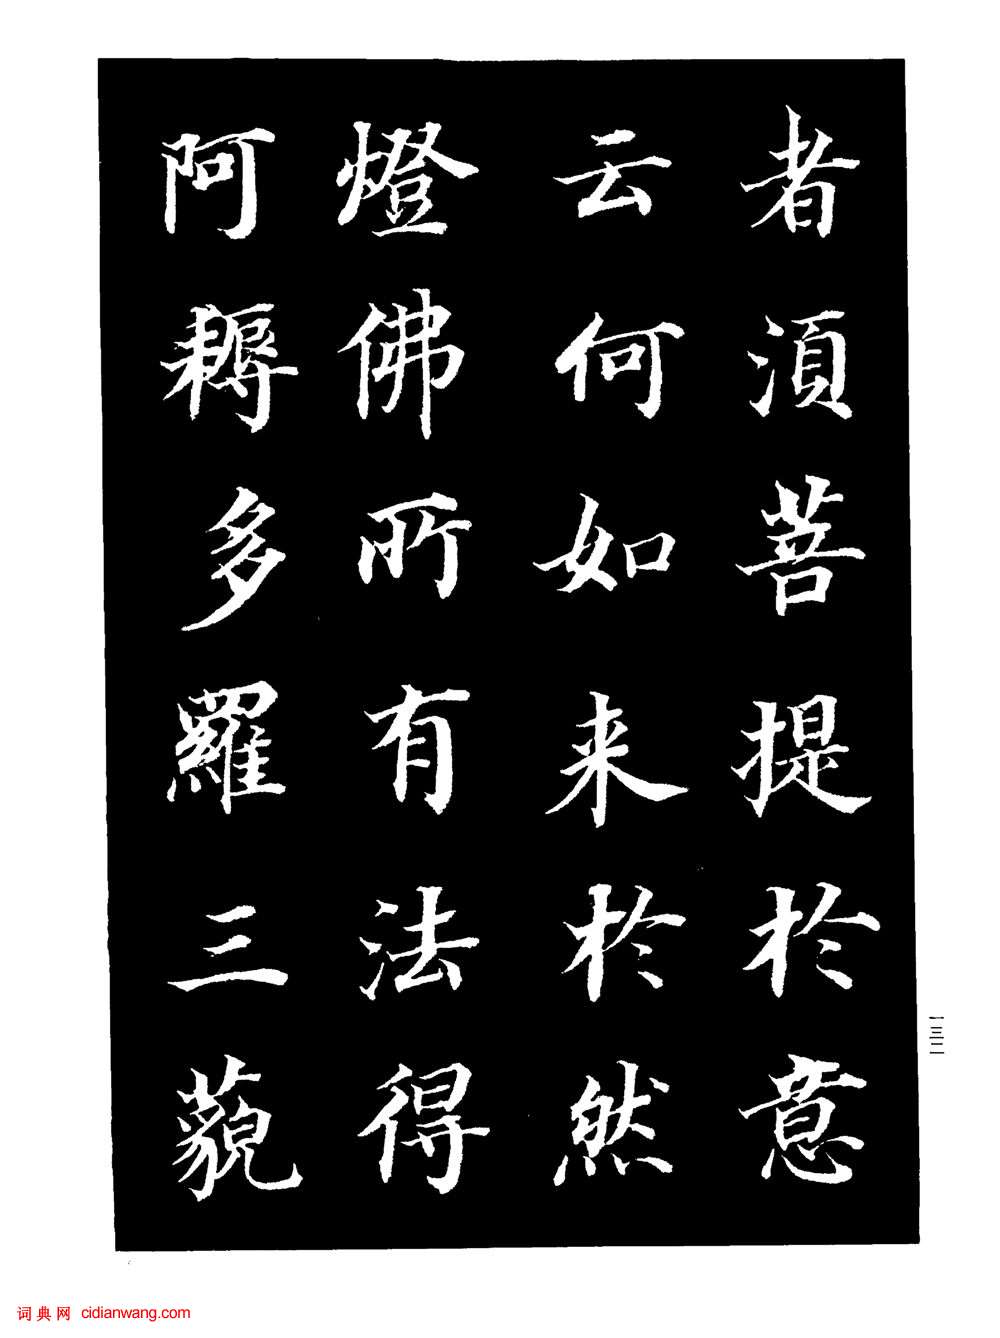 者湏菩提於意
云何如来於然
燈佛所有法得
阿耨多羅三藐
一三二
词典网 cidianwang.com